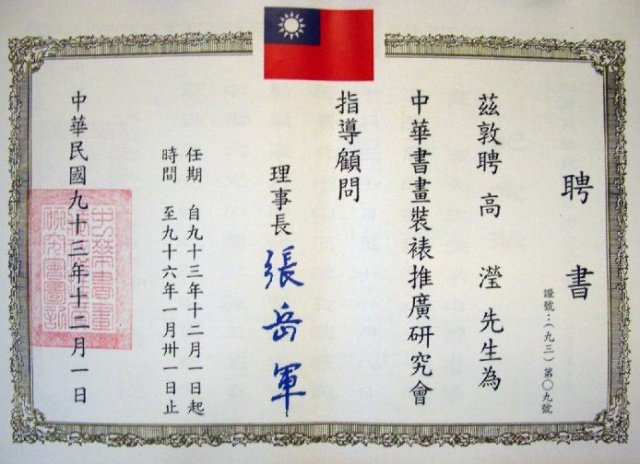 聘書
證號:(九三)第〇九號
茲敦聘 高 瀅 先生為
中華書畫裝裱推廣研究會
指導顧問
理事長 張岳軍
任期 自九十三年十二月一日起
時間 至九十六年一月卅一日止
中華民國九十三年十二月一日